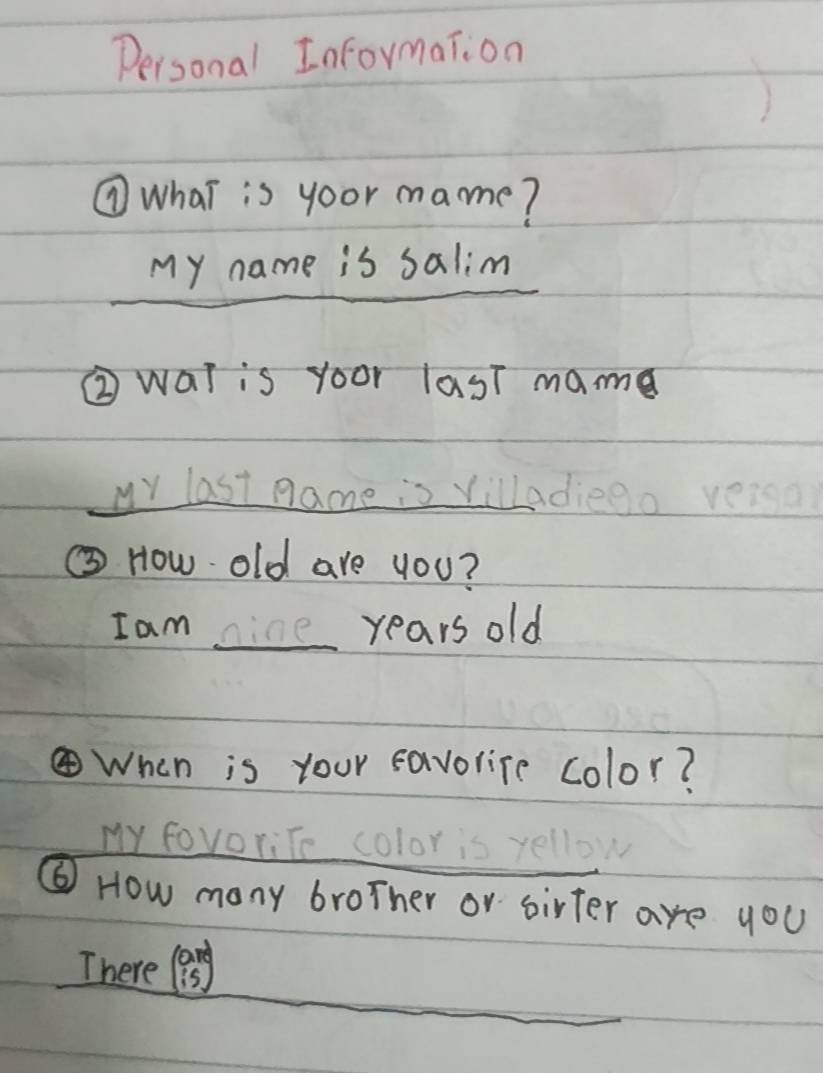 Personal Information
① What is yoor mame?
My name is salim
② wat is yoor last mame
My last name is Villadiego
③ How old are you?
I am nine years old
④ When is your favorite color?
My fovorite color is yellow
⑥ How many brother or sirter are you
There (are
is)